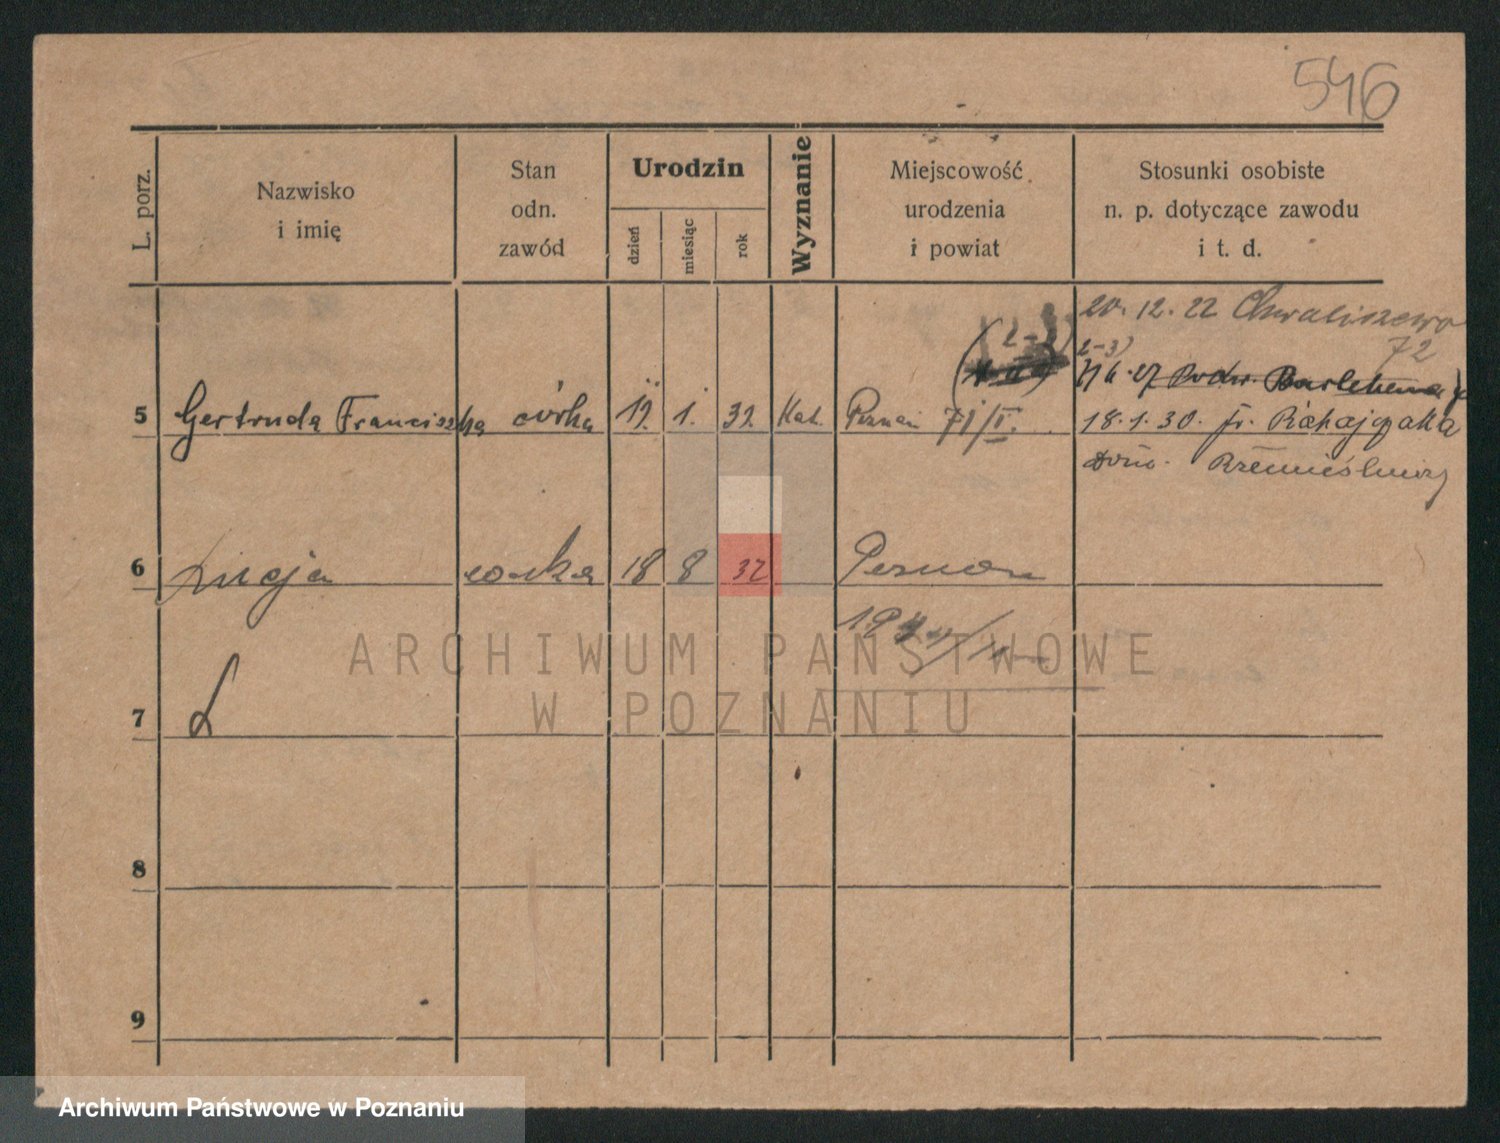 546
L. porz.
Nazwisko
i imię
Stan
odn.
zawód
Urodzin
dzień
miesiąc
rok
Wyznanie
Miejscowość
urodzenia
i powiat
Stosunki osobiste
n. p. dotyczące zawodu
i t. d.
20. 12. 22 Chwaliszewo
72
(2-3)
2-3)
5 Gertruda Franciszka córka 19. 1. 32. Kat. Poznań 71/II. 18. 1. 30. fr.
Rzemieślniczy
6 Łucja córka 18 8 32 Poznań
7
8
9
ARCHIWUM PAŃSTWOWE
W POZNANIU
Archiwum Państwowe w Poznaniu